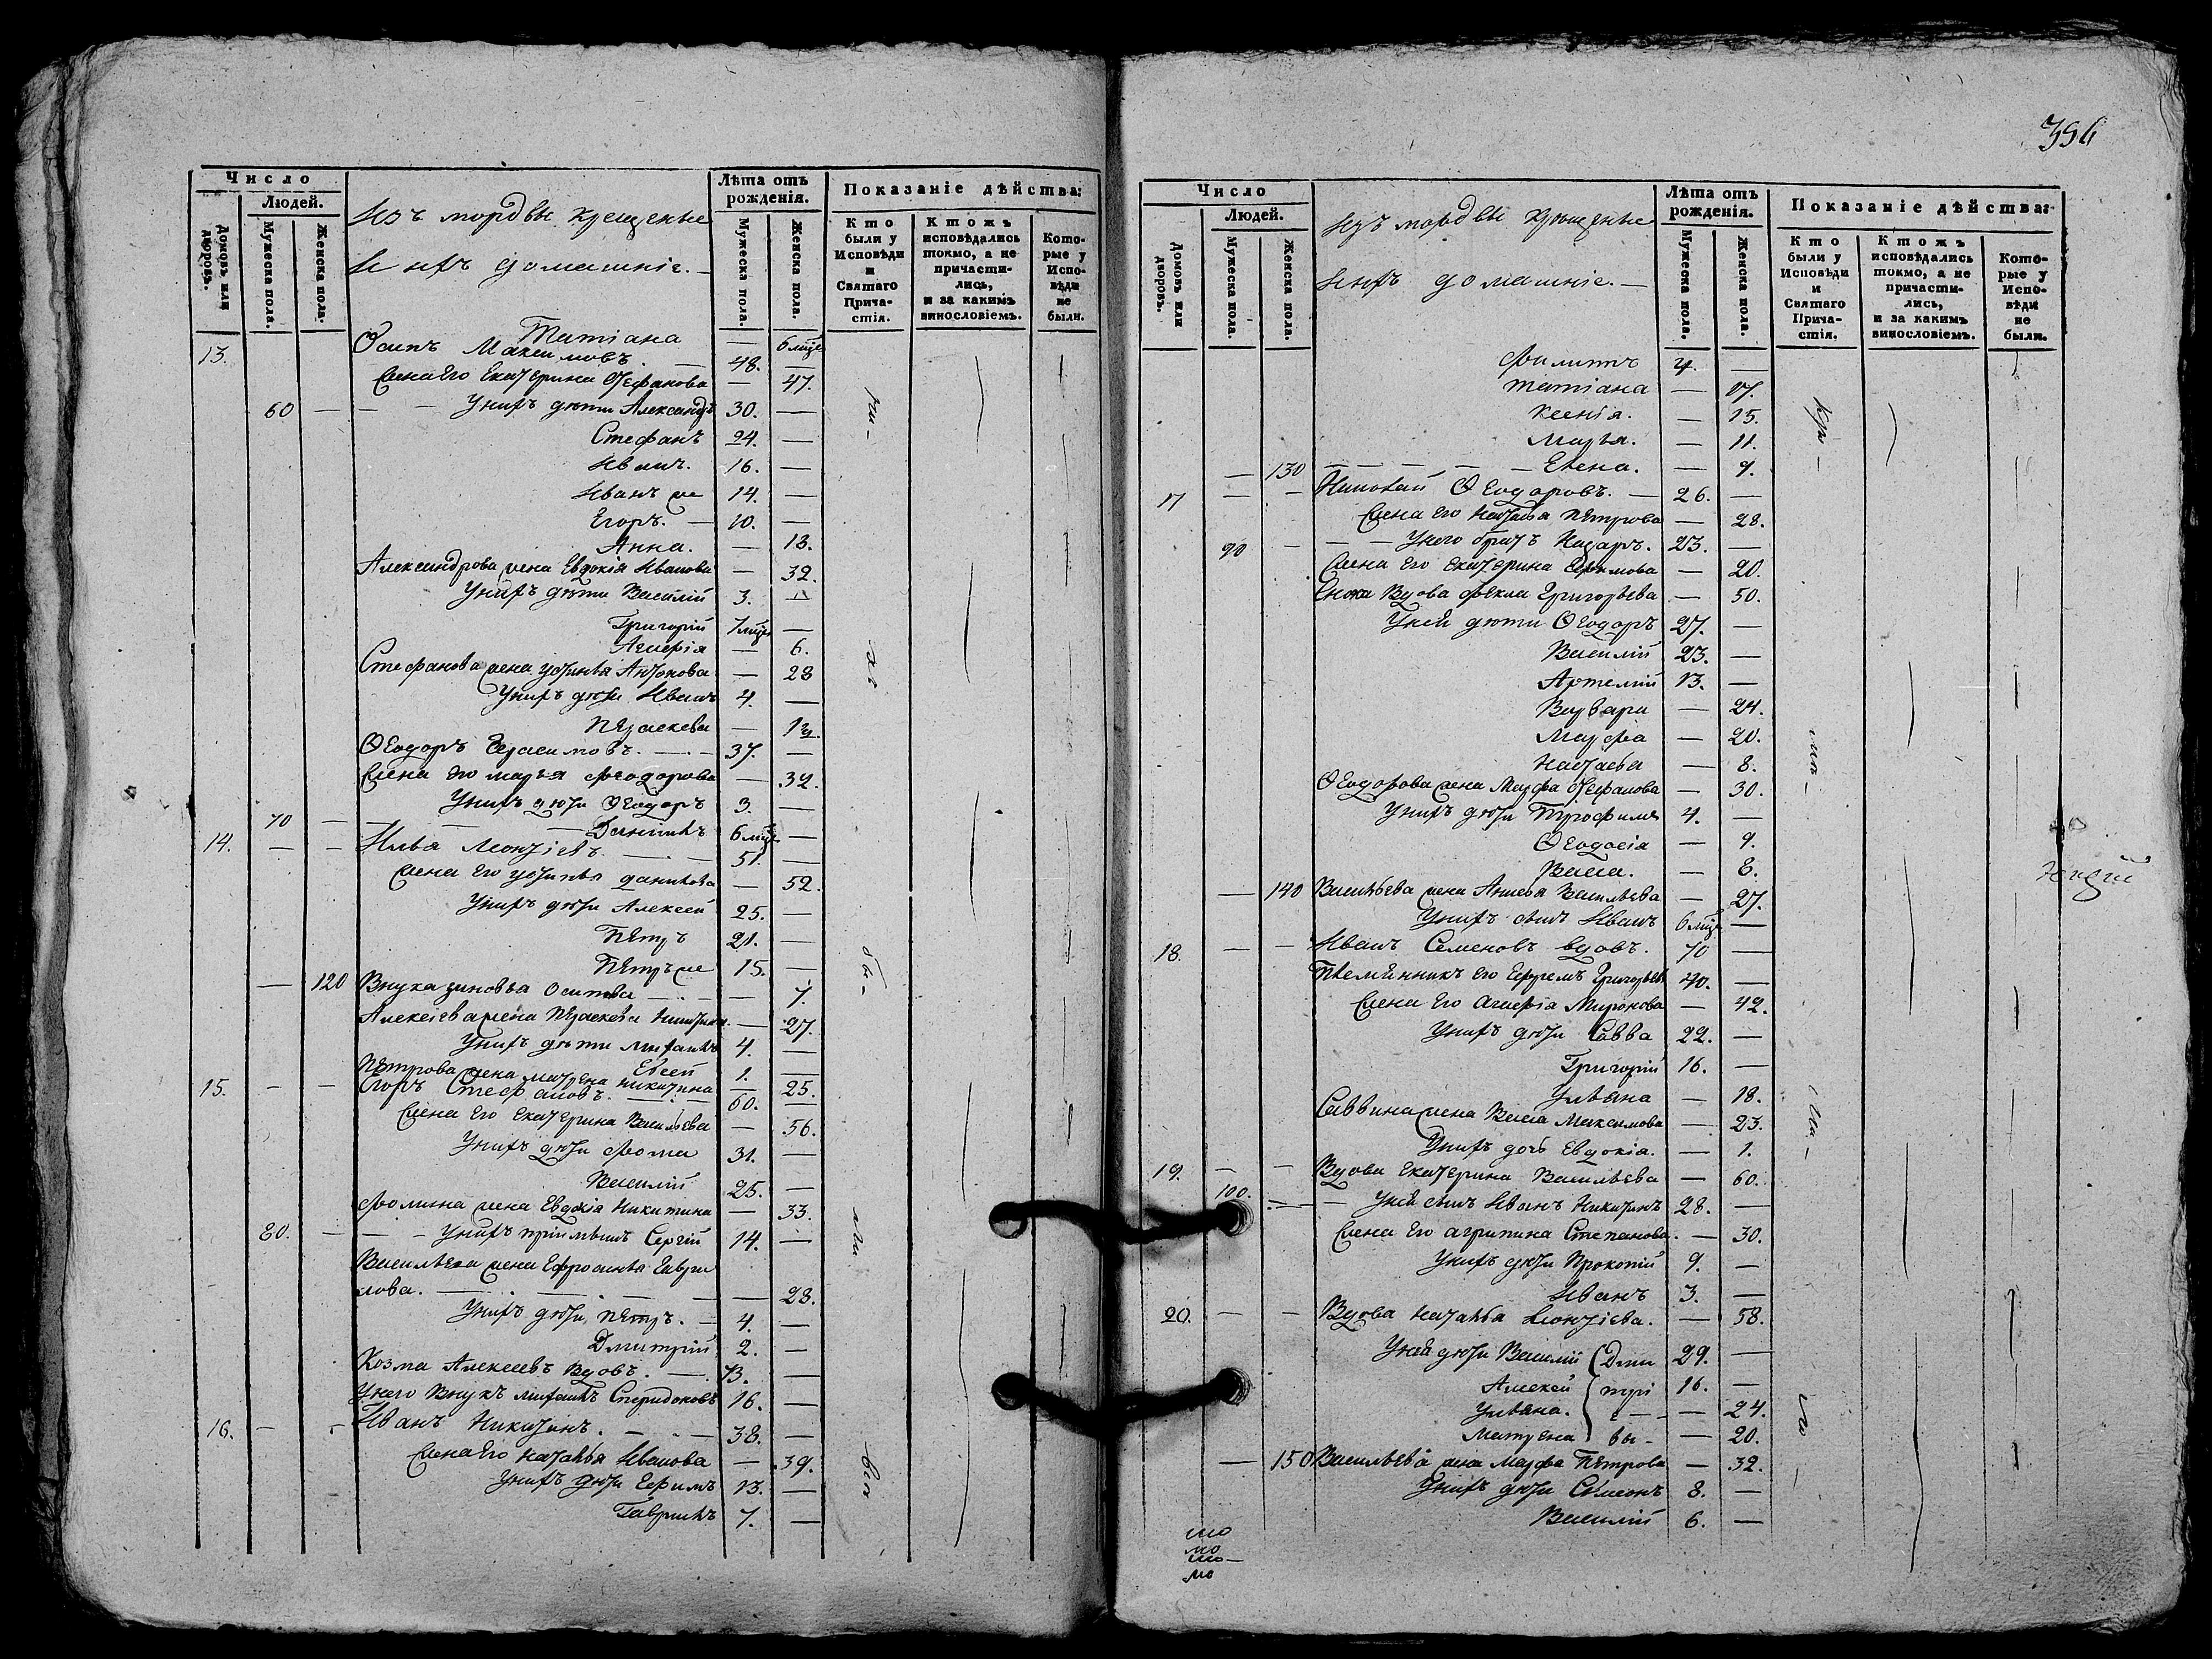 Число
Людей.
Домовъ или дворовъ.
Мужеска пола.
Женска пола.
Изъ мордвы крещеные
и ихъ домашніе. —
Лѣта отъ рожденія.
Мужеска пола.
Женска пола.
Показаніе дѣйства:
Кто были у Исповѣди и Святаго Прича-стія.
Ктожъ исповѣдались токмо, а не причасти-лись, и за какимъ винословіемъ.
Кото-рые у Испо-вѣди не были.
Татіана — 6 мце
13. Осипъ Максимовъ. — 48. —
Жена Его Екатерина Стефанова — 47.
60 — — — Унихъ дѣти Александръ 30. —
Стефанъ 24. —
Иванъ. 16. —
Иванъ же 14. —
Егоръ. — 10. —
Анна. — 13.
Александрова жена Евдокія Иванова — 32.
Унихъ дѣти Василій 3. —
Григорій 7 мце —
Агафія — 6.
Стефанова жена Устинья Антонова — 28
Унихъ дѣти Иванъ 4. —
Параскева —
Ѳеодоръ Герасимовъ. — 37. —
Жена Его Марья Феодорова — 32.
Унихъ дѣти Ѳеодоръ 3. —
70 — — — Даніилъ 6 мце —
14. — — Илья Леонтіевъ. — 51. —
Жена Его Устинья Данилова — 52.
Унихъ дѣти Алексей 25. —
Петръ 21. —
Петръ же 15. —
— 120 Внука Зиновья Осипова — — 7.
Алексіева жена Параскева Никитина. — 27.
Унихъ дѣти Михаилъ 4. —
Евсей 1. —
Петрова жена Матрена Никитина — 25.
15. — — Егоръ Стефановъ. — 60. —
Жена Его Екатерина Васильева — 56.
Унихъ дѣти Фома 31. —
Василій 25. —
Фомина жена Евдокія Никитина — 33.
80. — — — Унихъ пріимышъ Сергій 14. —
Васильева жена Ефросинья Гаври
лова. — — — 28.
Унихъ дѣти Петръ. — 4. —
Дмитрій 2. —
Козма Алексеевъ Вдовъ. — 73. —
Унего Внукъ Михаилъ Спиридоновъ 16. —
16. — — Иванъ Никитинъ. — — 38. —
Жена Его Наталья Иванова — 39.
Унихъ дѣти Ефимъ 13. —
Гавриилъ 7. —
Число
Людей.
Домовъ или дворовъ.
Мужеска пола.
Женска пола.
Изъ мордвы крещеные
и ихъ домашніе. —
Лѣта отъ рожденія.
Мужеска пола.
Женска пола.
Показаніе дѣйства:
Кто были у Исповѣди и Святаго Прича-стія.
Ктожъ исповѣдались токмо, а не причасти-лись, и за какимъ винословіемъ.
Кото-рые у Испо-вѣди не были.
Филиппъ 4. —
Татіана — 17.
Ксенія. — 15.
Марья. — 11.
— 130 — — — — — Елена. — 9.
17 — — Николай Ѳеодоровъ. — 26. —
Жена Его Наталья Петрова — 28.
90 — — — Унего братъ Назаръ. 23. —
Жена Его Екатерина Ефимова — 20.
Сноха Вдова Фекла Григорьева — 50.
Уней дѣти Ѳеодоръ 27. —
Василій 23. —
Артемій 13. —
Варвара — 24.
Марфа — 20.
Настасья — 8.
Ѳеодорова жена Марфа Стефанова — 30.
Унихъ дѣти Трофимъ 4. —
Ѳеодосія — 9.
Васса. — 8.
— 140 Васильева жена Анисья Васильева — 27.
Унихъ сынъ Иванъ 6 мце —
18. — — Иванъ Семеновъ вдовъ. 70 —
Племянникъ Его Ефремъ Григорьевъ 40. —
Жена Его Агафія Миронова — 42.
Унихъ дѣти Савва 22. —
Григорій 16. —
Ульяна — 18.
Саввина жена Васса Максимова — 23.
Унихъ дочь Евдокія. — 1.
19. — — Вдова Екатерина Васильева — 60.
100. — — Уней сынъ Иванъ Никитинъ 28. —
Жена Его Агрипина Степанова. — 30.
Унихъ дѣти Прокопій 9. —
Иванъ 3. —
20. — — Вдова Наталья Леонтіева. — 58.
Уней дѣти Василій (Дми 29. —
Алексей трі 16. —
Ульяна. е — — 24.
Матрена вы — — 20.
— 150 Васильева жена Марфа Петрова — 32.
Унихъ дѣти Симеонъ 8. —
Василій 6. —